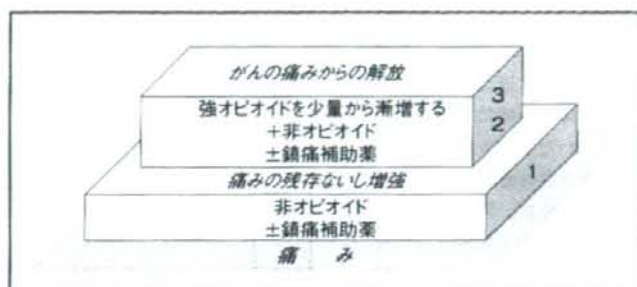 がんの痛みからの解放
強オピオイドを少量から漸増する
+非オピオイド
±鎮痛補助薬
3
2
痛みの残存ないし増強
1
非オピオイド
±鎮痛補助薬
痛 み